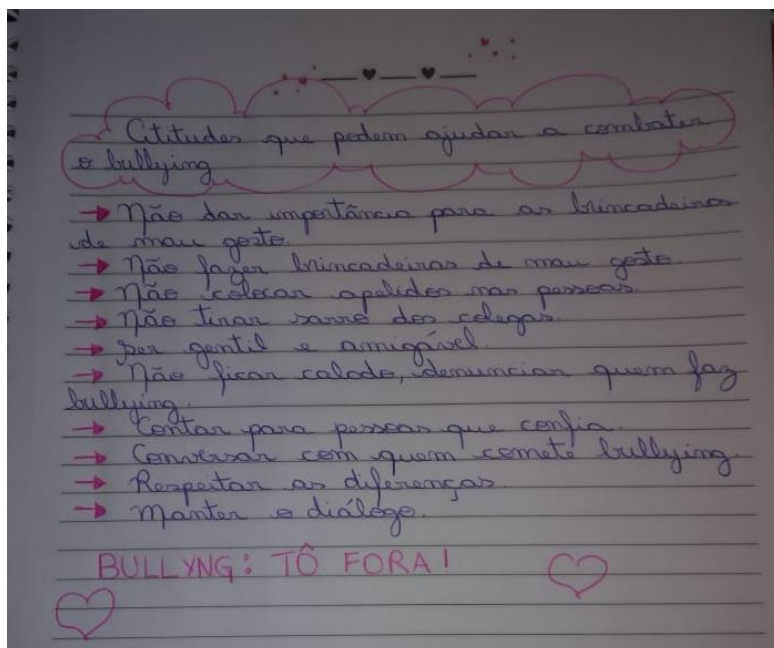 Atitudes que podem ajudar a combater
o bullying
Não dar importância para as brincadeiras
de mau gosto.
Não fazer brincadeiras de mau gosto.
Não colocar apelidos nas pessoas.
Não tirar sarro dos colegas.
Ser gentil e amigável.
Não ficar calado, denunciar quem faz
bullying.
Contar para pessoas que confia.
Conversar com quem comete bullying.
Respeitar as diferenças.
Manter o diálogo.
BULLYNG: TÔ FORA!